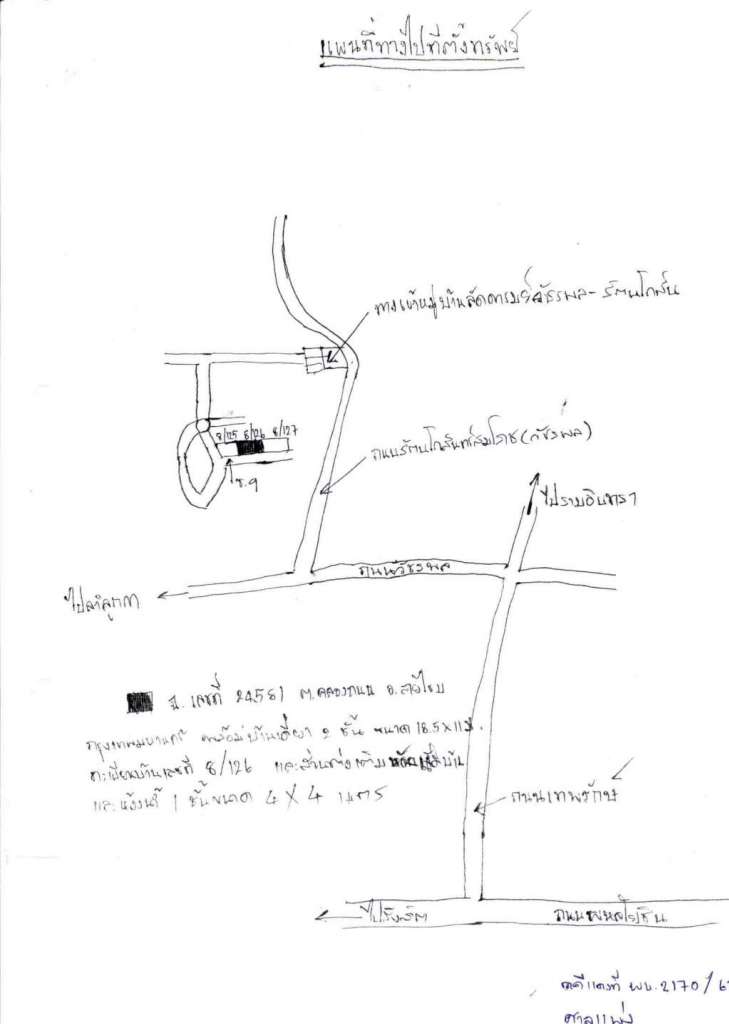 แผนที่ทางไปที่ตั้งทรัพย์
ทางเข้าหมู่บ้านลัดดารมย์วัชรพล-รัตนโกสินทร์
8/125 8/126 8/127
ซ.9
ถนนรัตนโกสินทร์สมโภช(วัชรพล)
ไปรามอินทรา
ถนนวัชรพล
ไปลำลูกกา
ฉ. เลขที่ 24581 ต.คลองถนน อ.สายไหม
กรุงเทพมหานคร พร้อมบ้านเดี่ยว 2 ชั้น ขนาด 18.5x11 ม.
ทะเบียนบ้านเลขที่ 8/126 และส่วนต่อเติม
และ 1 ชั้นขนาด 4 X 4 เมตร
ถนนเทพรักษ์
ไปรังสิต
ถนนพหลโยธิน
คดีแดงที่ ผบ.2170/6
ศาลแพ่ง